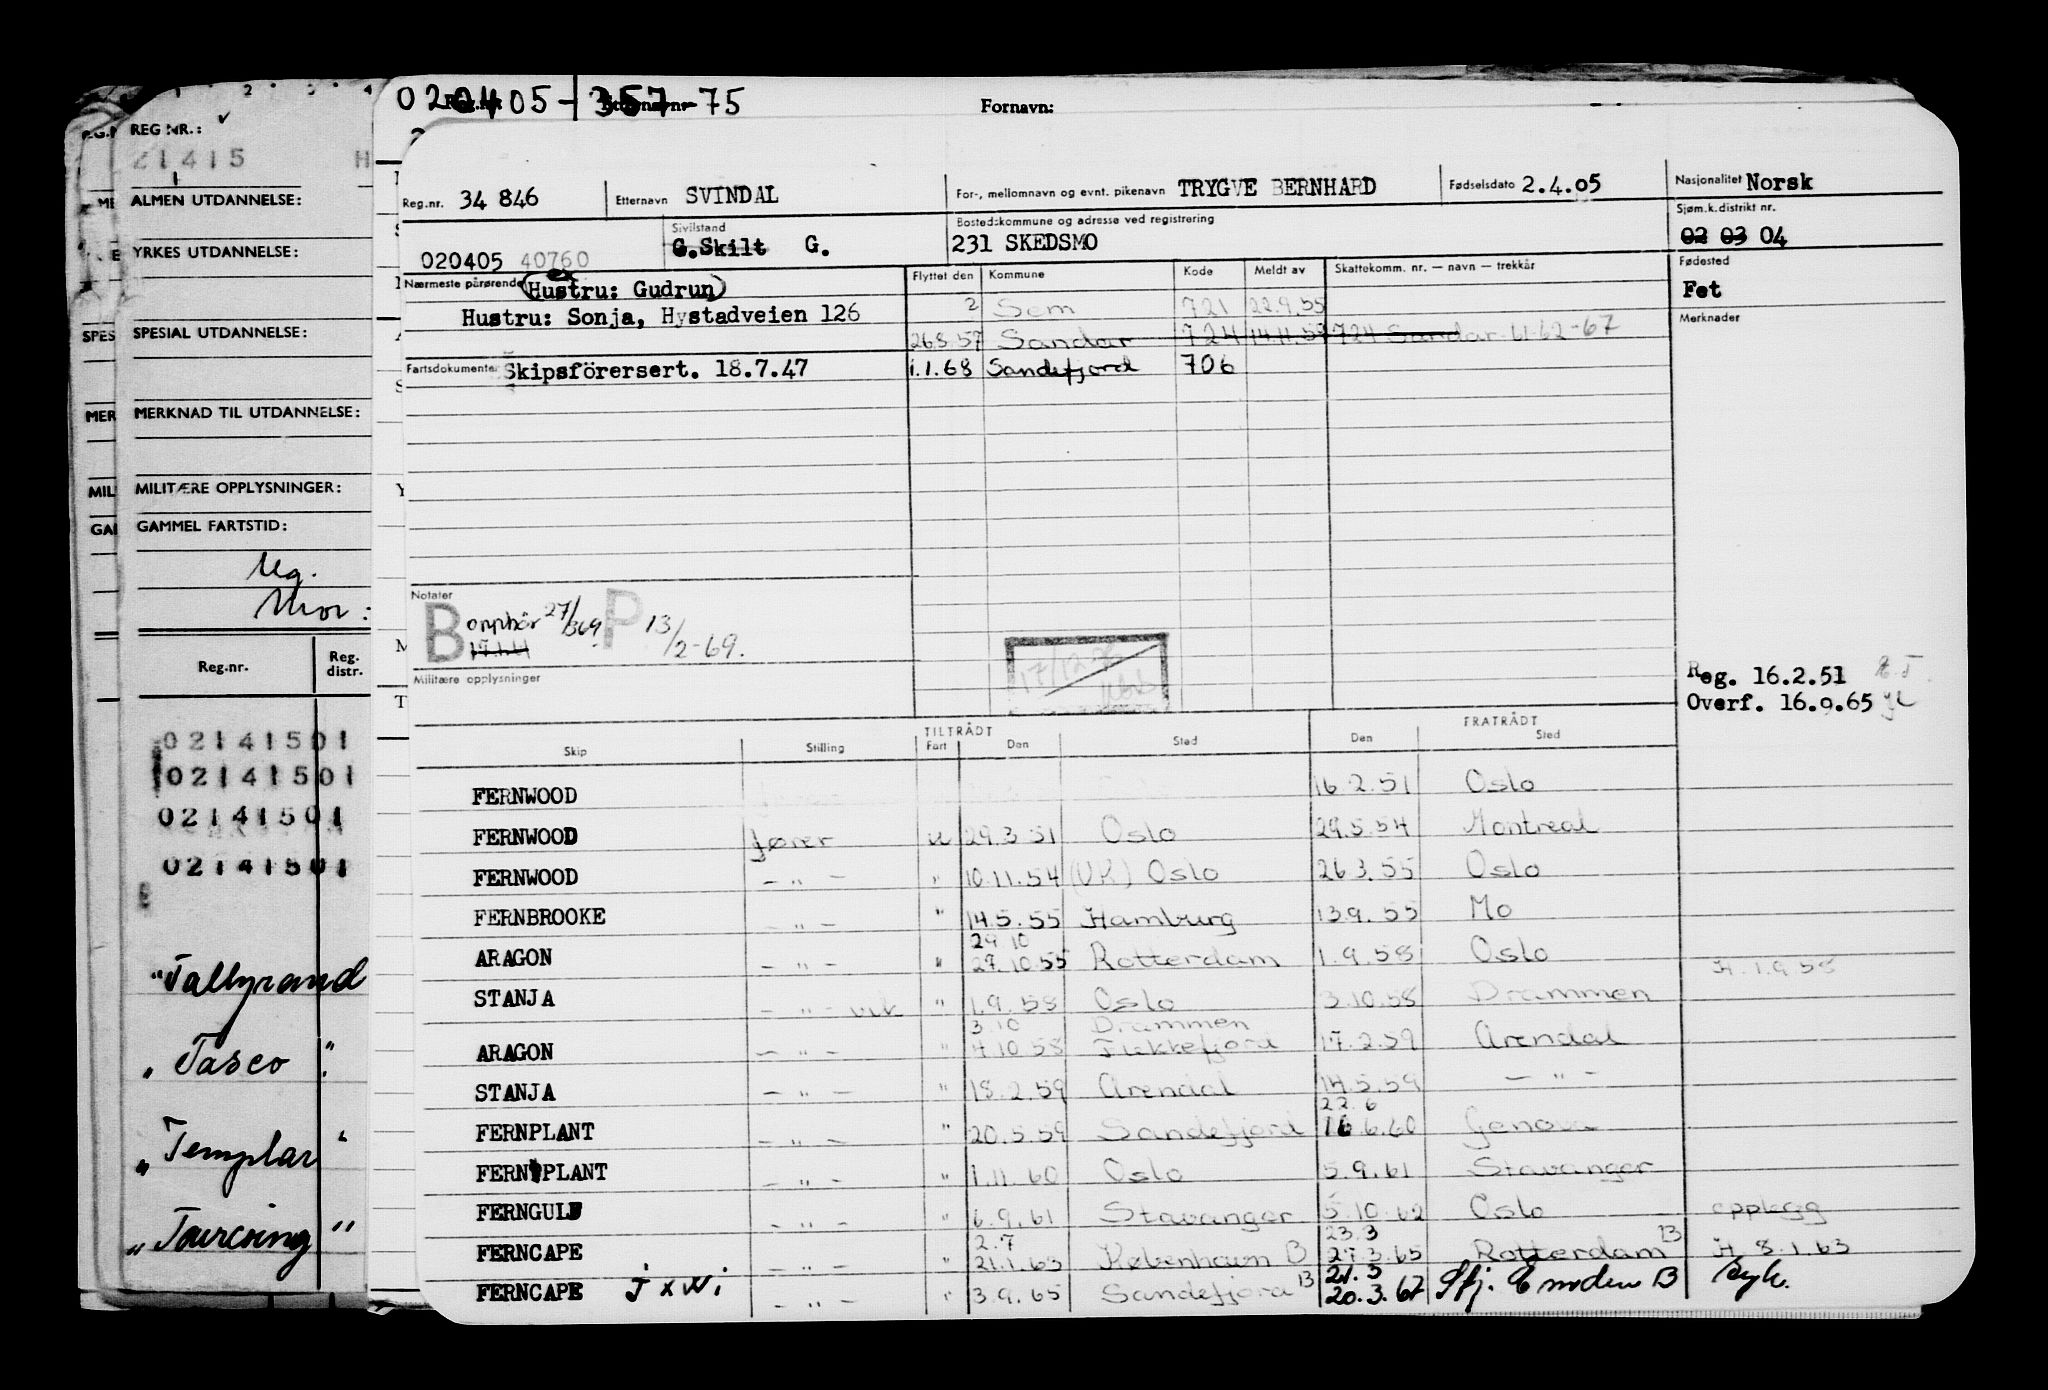 1 2 3 4
REG NR.:
21415 H
ALMEN UTDANNELSE:
YRKES UTDANNELSE:
SPESIAL UTDANNELSE:
MERKNAD TIL UTDANNELSE:
MILITÆRE OPPLYSNINGER:
GAMMEL FARTSTID:
Reg.nr. Reg. distr.
02141501
02141501
02141501
02141501
"Tallyrand
"Tasco"
"Templar"
"Tourcoing"
020405-357-75 Fornavn:
Reg.nr. 34 846 Etternavn SVINDAL For-, mellomnavn og evnt. pikenavn TRYGVE BERNHARD Fødselsdato 2.4.05 Nasjonalitet Norsk
020405 40760 Sivilstand G.Skilt G. Bostedskommune og adresse ved registrering 231 SKEDSMO Sjøm.k.distrikt nr. 02 03 04
Nærmeste pårørende Hustru: Gudrun Flyttet den Kommune Kode Meldt av Skattekomm. nr. — navn — trekkår Fødested
Fet
Hustru: Sonja, Hystadveien 126 2 Sem 721 22.9.55 Merknader
26.8.57 Sandar 724 14.11.57 724 Sandar 61-62-67
Fartsdokumenter Skipsförersert. 18.7.47 1.1.68 Sandefjord 706
Notater
B opphør 27/369. P 13/2-69.
17/12-75
Militære opplysninger
Reg. 16.2.51
Overf. 16.9.65
TILTRÅDT FRATRÅDT
Skip Stilling Fart Den Sted Den Sted
FERNWOOD 16.2.51 Oslo
FERNWOOD fører u 29.3.51 Oslo 29.5.54 Montreal
FERNWOOD - " - " 10.11.54 (UK) Oslo 26.3.55 Oslo
FERNBROOKE - " - " 14.5.55 Hamburg 13.9.55 Mo
29 10
ARAGON - " - " 27.10.55 Rotterdam 1.9.58 Oslo H 1.9.58
STANJA - " - vik " 1.9.58 Oslo 3.10.58 Drammen
3 10 Drammen
ARAGON - " - " 4.10.58 Fikkefjord 17.2.59 Arendal
STANJA - " - " 18.2.59 Arendal 14.5.59 - " -
22.6
FERNPLANT - " - " 20.5.59 Sandefjord 16.6.60 Genova
FERNPLANT - " - " 1.11.60 Oslo 5.9.61 Stavanger
FERNGULF - " - " 6.9.61 Stavanger 5.10.62 Oslo opplegg
2.7 23.3
FERNCAPE - " - " 21.1.63 København B 27.3.65 Rotterdam B H 8.1.63
21.3
FERNCAPE - " - " 3.9.65 Sandefjord B 20.3.67 Sfj. Emden B syk.